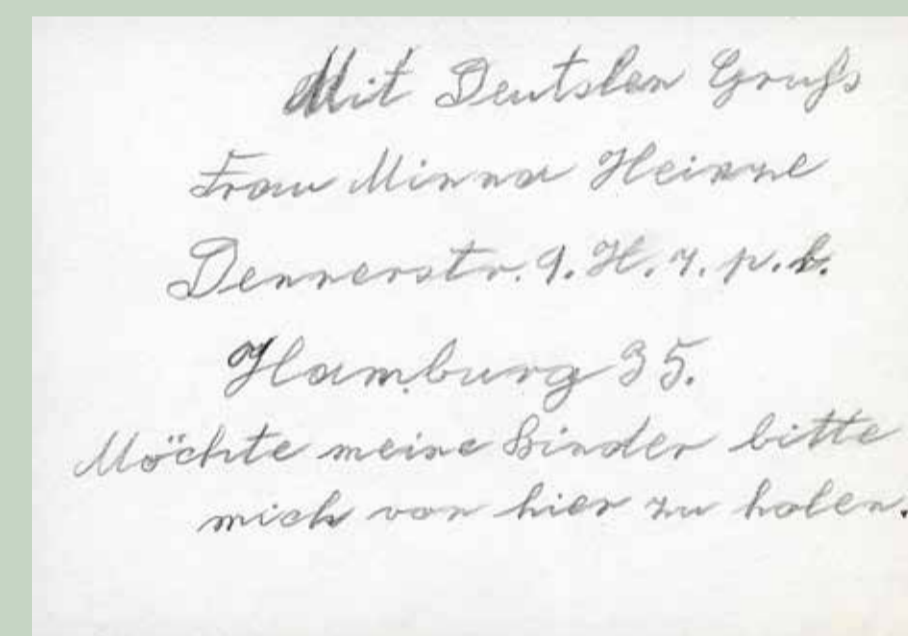 Mit Deutslen Gruß
Frau Minna Heinze
Dennerstr. 9. H. 4. p. b.
Hamburg 35.
Möchte meine Kinder bitte
mich von hier zu holen.